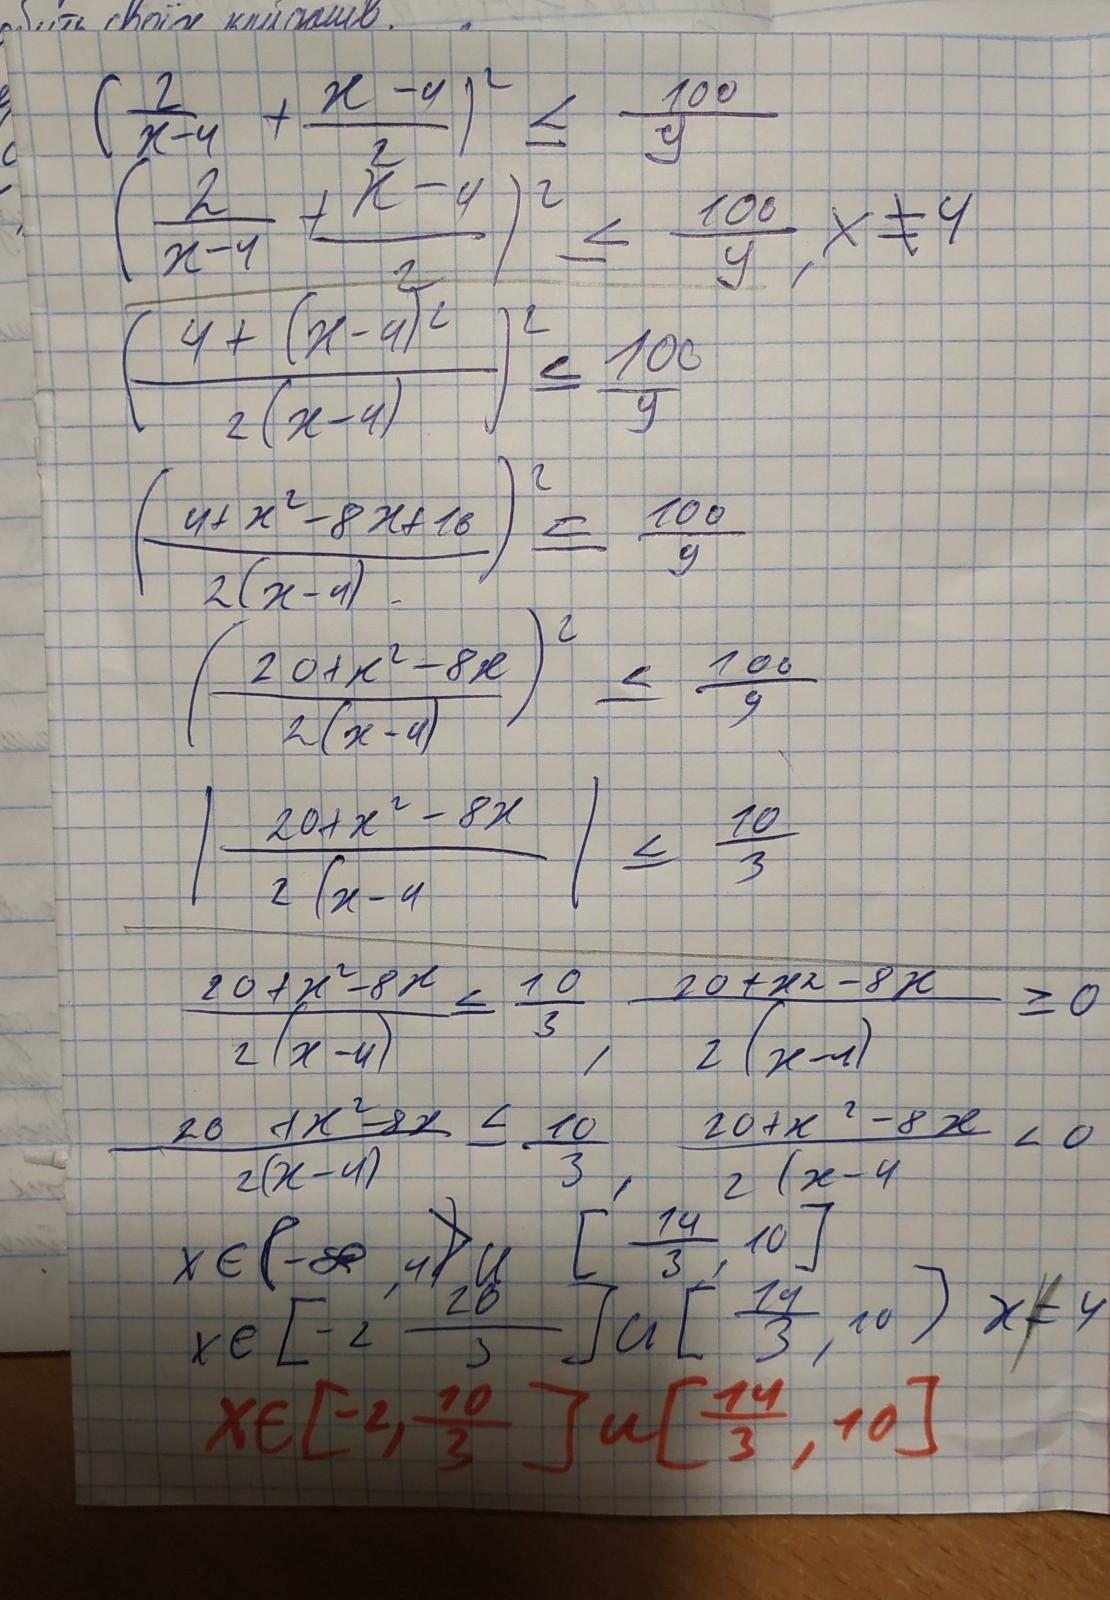 своїх
(2/(x-4) + (x-4)/2)² ≤ 100/9
(2/(x-4) + (x-4)/2)² ≤ 100/9, x ≠ 4
((4+(x-4)²)/(2(x-4)))² ≤ 100/9
((4+x²-8x+16)/(2(x-4)))² ≤ 100/9
((20+x²-8x)/(2(x-4)))² ≤ 100/9
|(20+x²-8x)/(2(x-4)| ≤ 10/3
(20+x²-8x)/(2(x-4)) ≤ 10/3, (20+x2-8x)/(2(x-4)) ≥ 0
(20+x²-8x)/(2(x-4)) ≤ 10/3, (20+x²-8x)/(2(x-4) < 0
x∈(-∞,4) u [14/3, 10]
x∈[-2 20/3] u [14/3, 10) x≠4
x∈[-2, 10/3] u [14/3, 10]